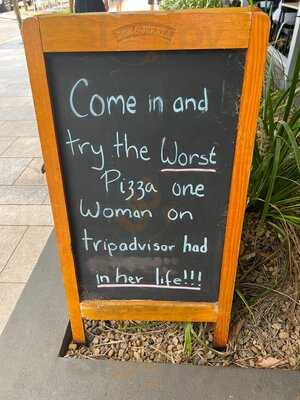 Come in and
try the Worst
Pizza one
Woman on
tripadvisor had
in her life!!!